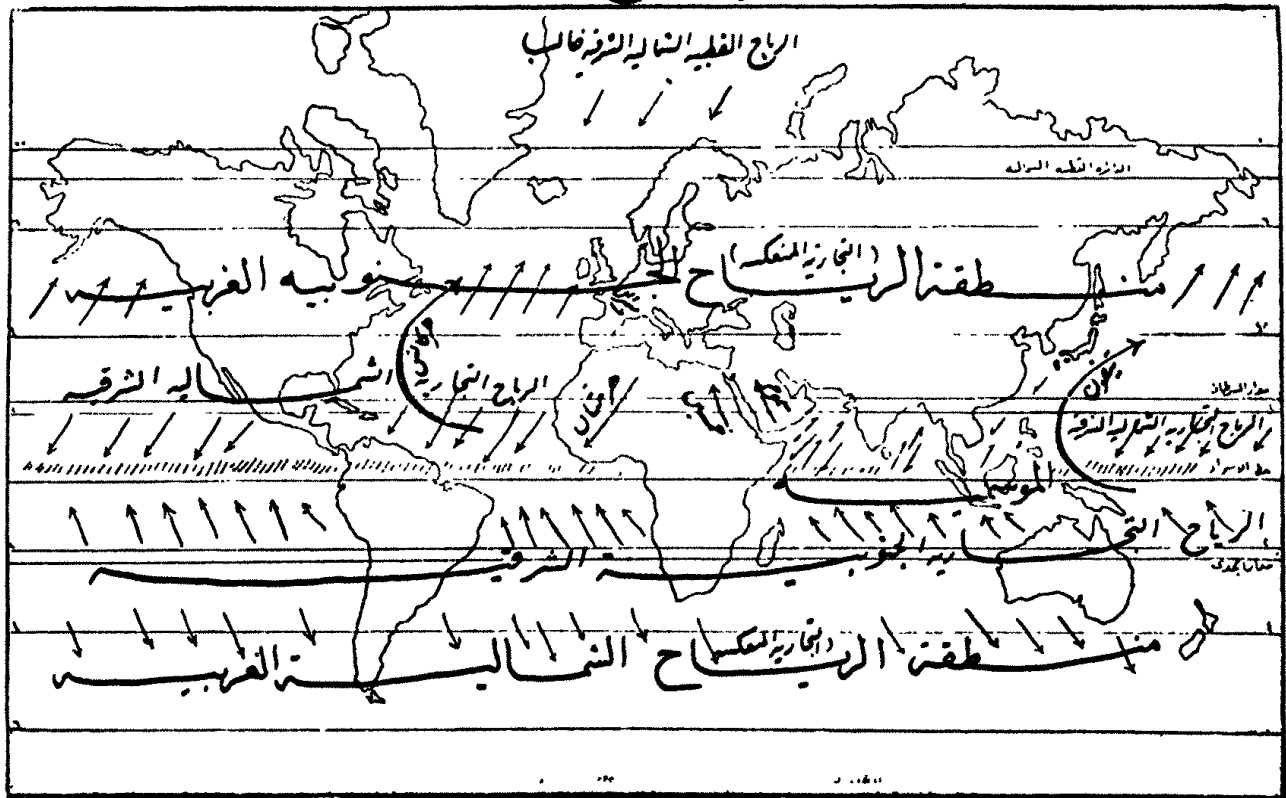 الرياح القطبيه الشماليه الشرقيه غالبا
الدائره القطبيه الشماليه
منطقة الرياح (التجارية المنعكسه) الجنوبيه الغربيه
هركانس
الرياح التجاريه الشماليه الشرقيه
مدار السرطان
الرياح التجاريه الشماليه الشرقيه
خط الاستواء
الموسميه
الرياح التجاريه الجنوبيه الشرقيه
مدار الجدى
منطقة الرياح (التجاريه المنعكسه) الشماليه الغربيه